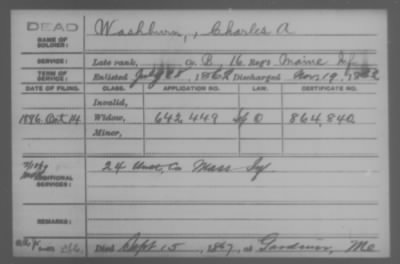 DEAD
NAME OF SOLDIER: Washburn, Charles A
SERVICE: Late rank, Co. B, 16 Reg't Maine Inf
TERM OF SERVICE: Enlisted July 1862 Discharged Nov. 19, 1862
DATE OF FILING. CLASS. APPLICATION NO. LAW. CERTIFICATE NO.
Invalid,
1896. Oct. 14 Widow, 642,449 864,840
Minor,
ADDITIONAL SERVICES: 24 Unat. Co Mass Inf
REMARKS:
Died Sept 15, 1867, at Gardiner, Me